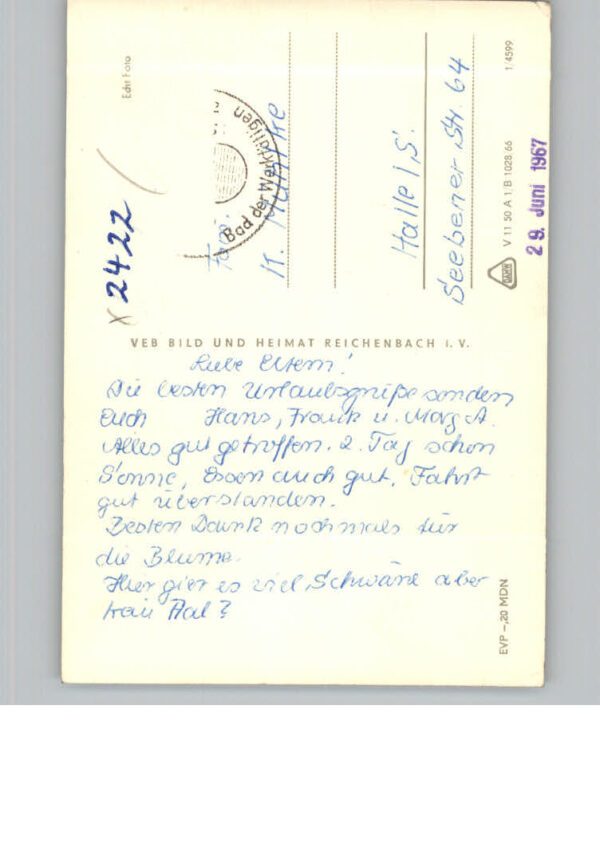 Echt Foto
X 2422
Bad der Werktätigen
Fam.
K.
Halle/S.
Seebener Str. 64
1/4599
V 11 50 A 1/B 1028/66
29. Juni 1967
VEB BILD UND HEIMAT REICHENBACH I. V.
Liebe Eltern!
Die besten Urlaubsgrüße senden
Euch Hans, Frank u. Marg A.
Alles gut getroffen. 2. Tag schon
Sonne, Essen auch gut, Fahrt
gut überstanden.
Besten Dank nochmals für
die Blume.
Hier giet es viel Schwäne aber
kein Aal?
EVP -,20 MDN